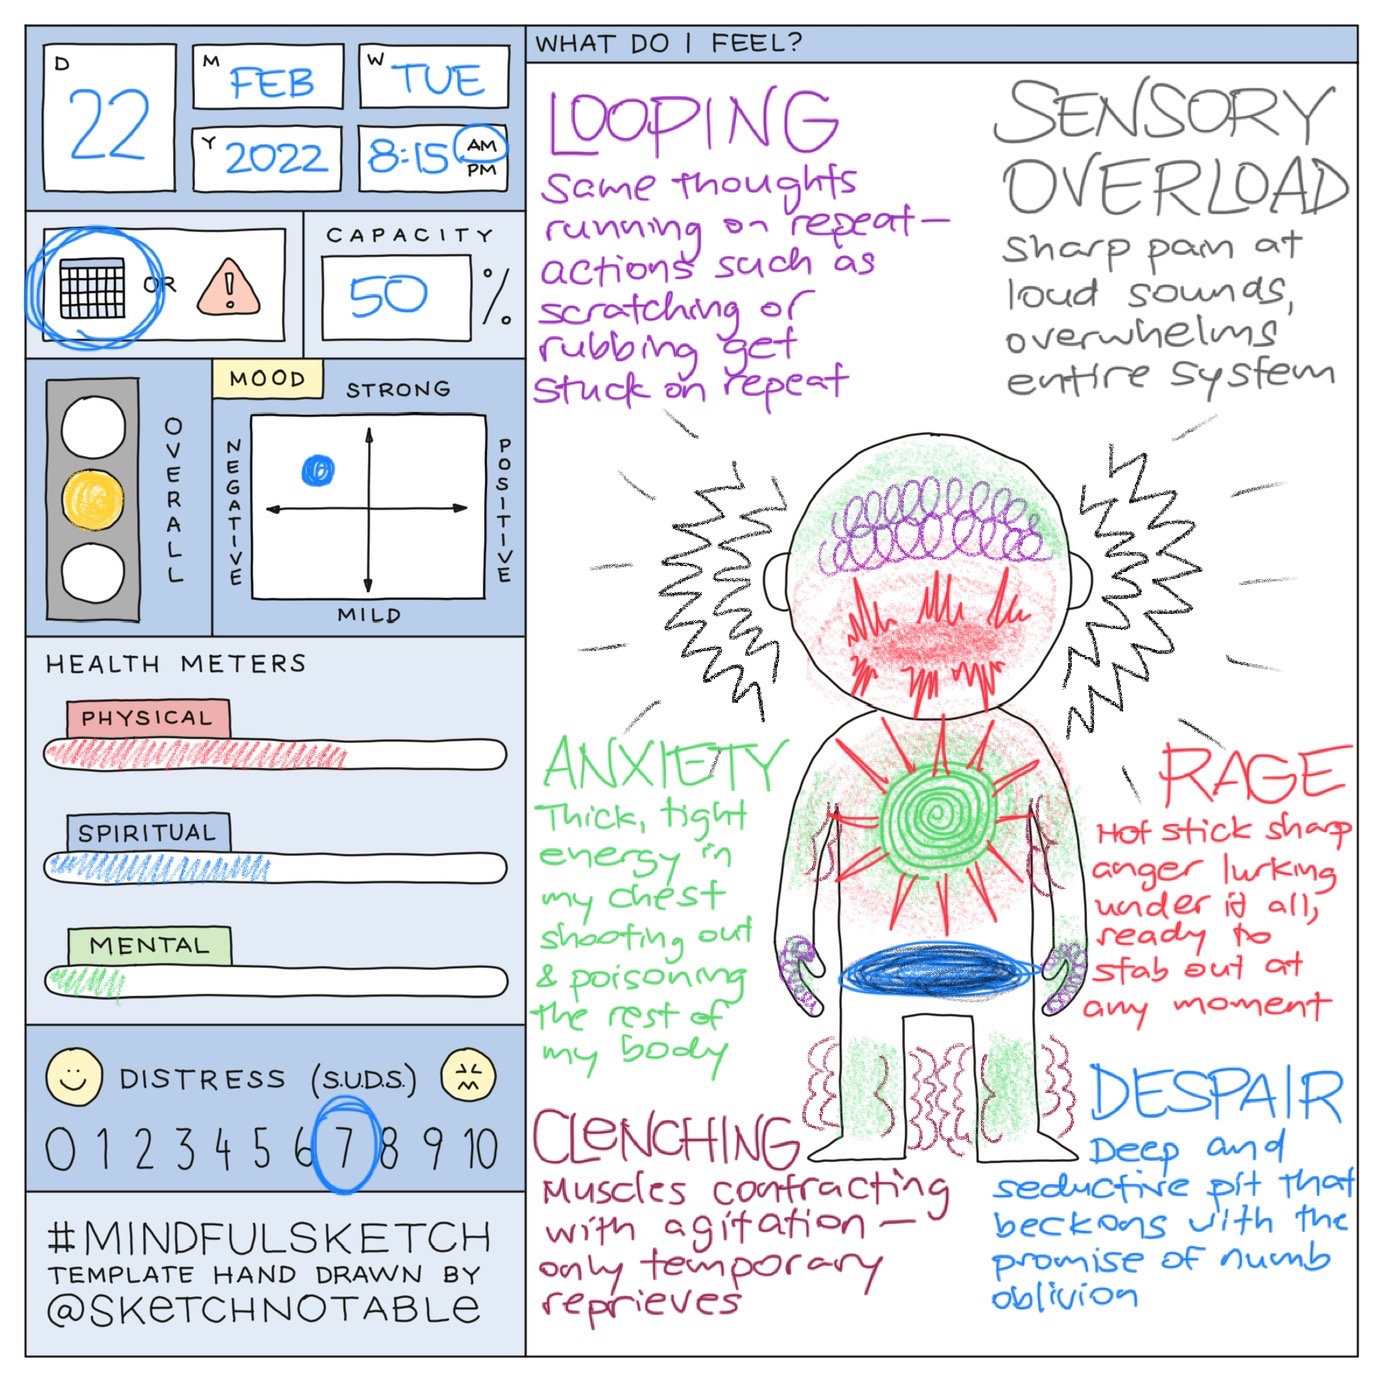 D
22
M
FEB
W
TUE
Y
2022
8:15 AM
PM
OR
!
CAPACITY
50 %
OVERALL
MOOD
STRONG
NEGATIVE
POSITIVE
MILD
HEALTH METERS
PHYSICAL
SPIRITUAL
MENTAL
DISTRESS (S.U.D.S.)
0 1 2 3 4 5 6 7 8 9 10
#MINDFULSKETCH
TEMPLATE HAND DRAWN BY
@SKETCHNOTABLE
WHAT DO I FEEL?
LOOPING
Same thoughts
running on repeat—
actions such as
scratching or
rubbing get
stuck on repeat
SENSORY
OVERLOAD
Sharp pain at
loud sounds,
overwhelms
entire system
ANXIETY
Thick, tight
energy in
my chest
shooting out
& poisoning
the rest of
my body
RAGE
Hot stick sharp
anger lurking
under it all,
ready to
stab out at
any moment
CLENCHING
Muscles contracting
with agitation—
only temporary
reprieves
DESPAIR
Deep and
seductive pit that
beckons with the
promise of numb
oblivion